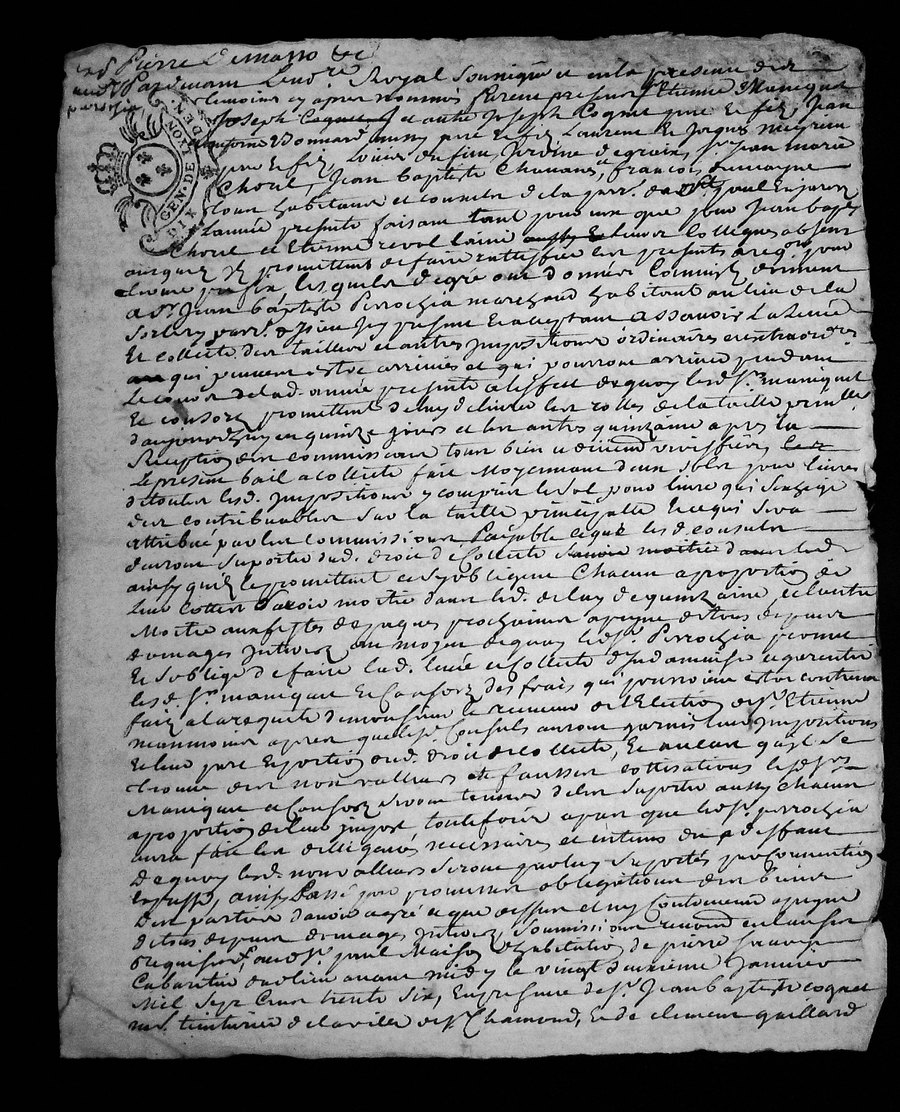 Pierre
Pardevant Royal Soussigné et en la presence des
temoins cy apres nommés furent presens Etienne Maniquet
Joseph Coquet et autre Joseph Coquet pere et fils, Jean
Bonnard aussy pere et fils Laurent et Jaques
pere et fils, Louis Jean Marie
Choril, Jean Baptiste Chavana, François
tous habitans et consuls de la parr. de St. paul En jarez
L'année presente faisant tant pour eux que pour Jean Bapt.
Choril et Etienne revol laine aussy leurs Collegues absens
ausquels ils promettent de faire ratiffier les presentes
lesquels de gré ont donnés
a Sr. Jean baptiste Perrochia marchand habitant au lieu de la
parr. de present et acceptant assavoir La Levée
Et collecte des tailles et autres impositions ordinaires et extraordres.
qui peuvent estre arrivées et qui pourront arriver pendant
Le cours de lad. année presente a l'effet de quoy lesd. Srs. maniquet
Et consors promettent de luy delivrer les rolles de la taille
d'aujourdhuy en quinze jours et les autres quinzaine apres la
Reception des commissions
Le present bail a collecte fait Moyennant deux sols pour livres
de toutes lesd. Impositions y compris le sol pour livre qui s'exige
des contribuables sur la taille principalle et ce qui sera
attribué par les commissions Payable ce que lesd. consuls
devront suporter dud. droit de Collecte moitié dans
ainsy quils le promettent et s'y obligent Chacun a proportion de
Leur cottes Savoir moitié dans led. delay de quinzaine et l'autre
Moitié aux festes de paques prochaines a peyne de tous depens
domages Interest au moyen de quoy led. Sr. Perrochia promet
Et s'oblige de faire lad. levée et Collecte d'Indamniser et garentir
lesd. Srs. maniquet Et Consors des frais qui pourroient estre contre eux
faits a la requete de monsieur le receveur de l'Election de St. Etienne
neanmoins apres que lesd. Consuls auront garnis leurs Impositions
Et leur part Et portion dud. droit de collecte, Et au cas quil se
trouve des non valleurs et fausses cottisations lesd. Srs.
Maniquet et Consors seront tenus de les suporter aussy chacun
a proportion de leur impost, toutefois apres que led. Sr. perrochia
aura fait les diligences necessaires et au deffaut
De quoy lesd. non valleurs seront par luy suportés par Convention
Expresse, ainsy Passé par promesses obligations des biens
Des parties d'avoir agré ce que dessus et n'y Contrevenir a peyne
de tous depens domages Interest, soumissions renond. et clauses
requises, fait aud. St. paul Maison d'habitation de pierre
Cabaretier dud. lieu avant midy le vingt deuxieme Janvier
Mil Sept Cens trente Six, En presence de Sr. Jean baptiste coquet
teinturier de la ville de St. Chamond, Et de clement gaillard